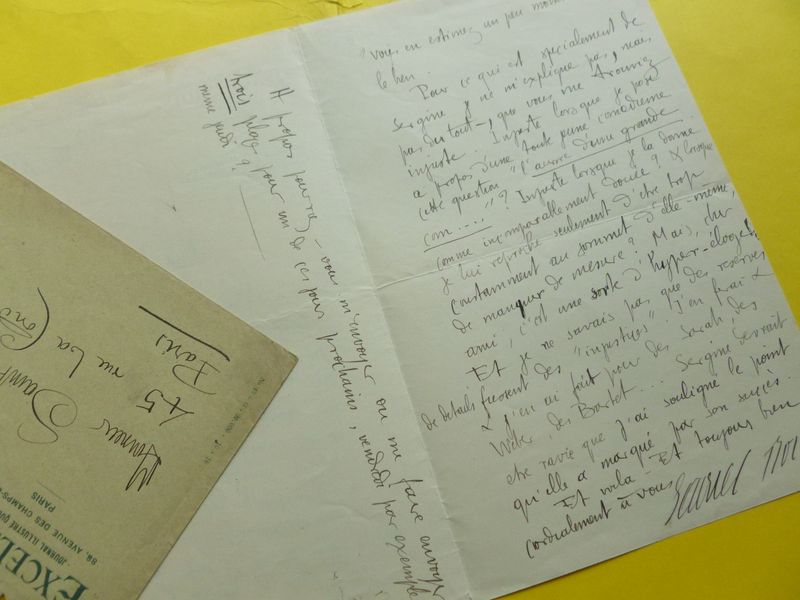 vous en estimez un peu moins
le bien.
Pour ce qui est spécialement de
Sergine je ne m'explique pas, mais
pas du tout –, que vous me trouviez
injuste. Injuste lorsque je pose
à propos d'une toute jeune comédienne
cette question "l'aurore d'une grande
com....." ? Injuste lorsque je la donne
comme incomparablement douée ? & lorsque
je lui reproche seulement d'être trop
constamment au sommet d'elle-même,
de manquer de mesure ? Mais, cher
ami, c'est une sorte d'hyper-éloge !
Et je ne savais pas que des réserves
de détails fussent des "injustices". J'en ferai &
j'en ai fait pour des Sarah, des
Weber, des Bartet.... Sergine devrait
être ravie que j'ai souligné le point
qu'elle a marqué par son succès.
Et voilà – Et toujours bien
cordialement à vous
A propos pourriez-vous m'envoyer ou me faire envoyer
trois places pour un de ces jours prochains, vendredi par exemple
même jeudi ?
Monsieur
45 rue La
Paris
EXCEL
JOURNAL ILLUSTRÉ QUO
88, AVENUE DES CHAMPS-É
PARIS